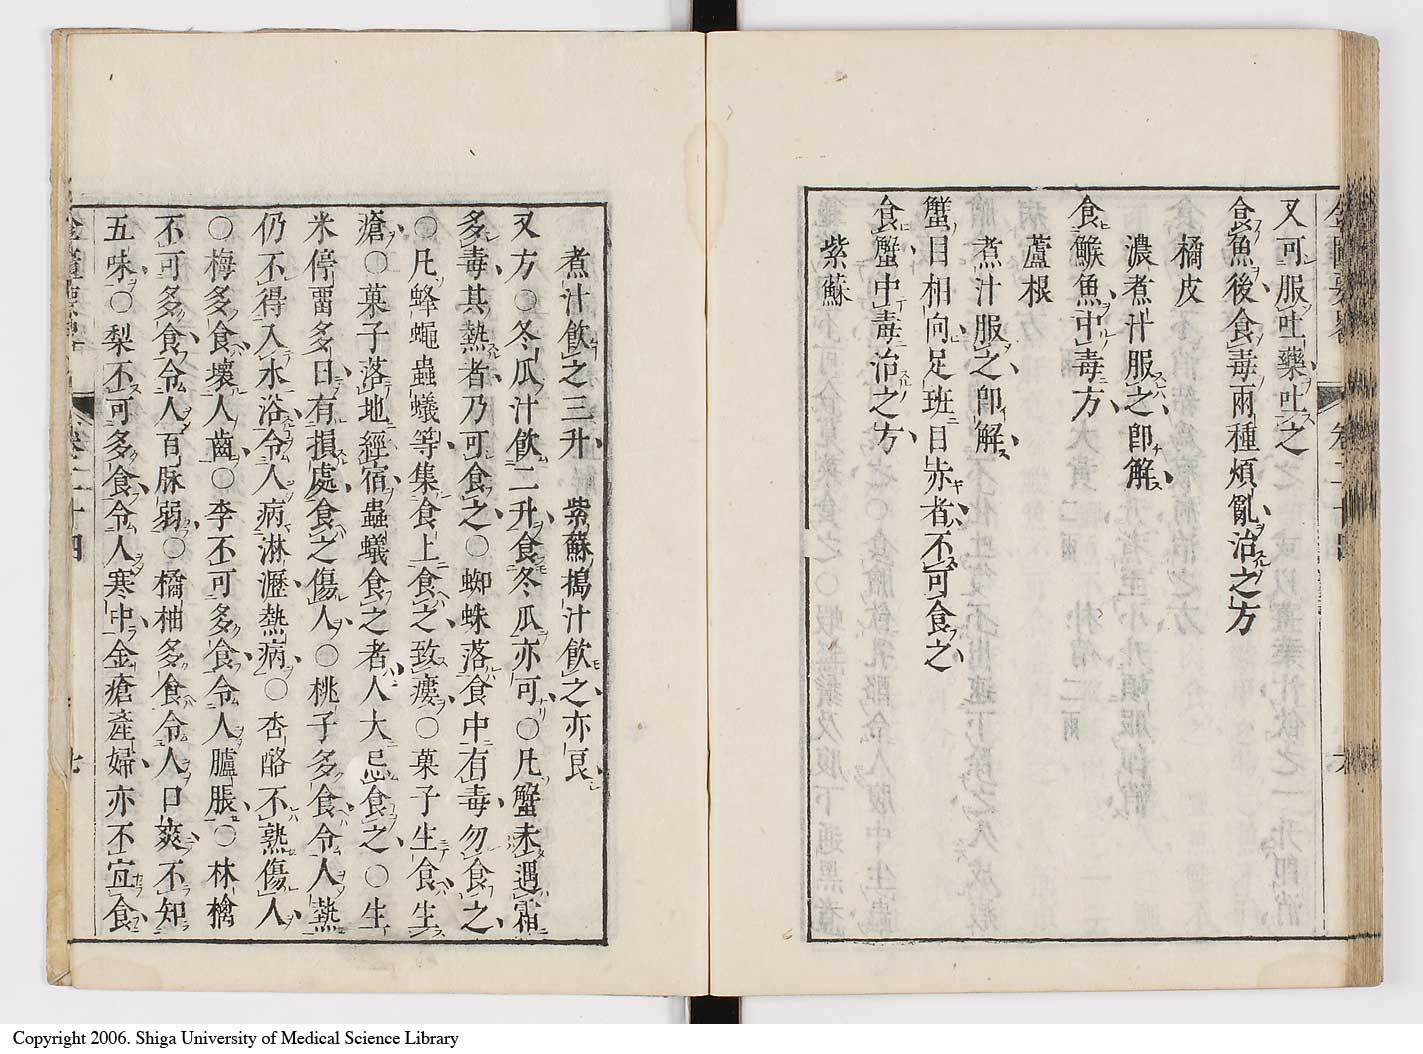 又可服吐藥吐之
食魚後食毒兩種煩亂治之方
橘皮
濃煮汁服之即解
食鯸魚中毒方
蘆根
煮汁服之即解
蟹目相向足班目赤者不可食之
食蟹中毒治之方
紫蘇
煮汁飲之三升 紫蘇搗汁飲之亦良
又方○冬瓜汁飲二升食冬瓜亦可○凡蟹未遇霜
多毒其熱者乃可食之○蜘蛛落食中有毒勿食之
○凡蜂蠅蟲蟻等集食上食之致瘻○菓子生食生
瘡○菓子落地經宿蟲蟻食之者人大忌食之○生
米停畱多日有損處食之傷人○桃子多食令人熱
仍不得入水浴令人病淋瀝熱病○杏酪不熟傷人
○梅多食壞人齒○李不可多食令人臚脹○林檎
不可多食令人百脉弱○橘柚多食令人口爽不知
五味○梨不可多食令人寒中金瘡產婦亦不宜食
卷二十四
七
Copyright 2006. Shiga University of Medical Science Library